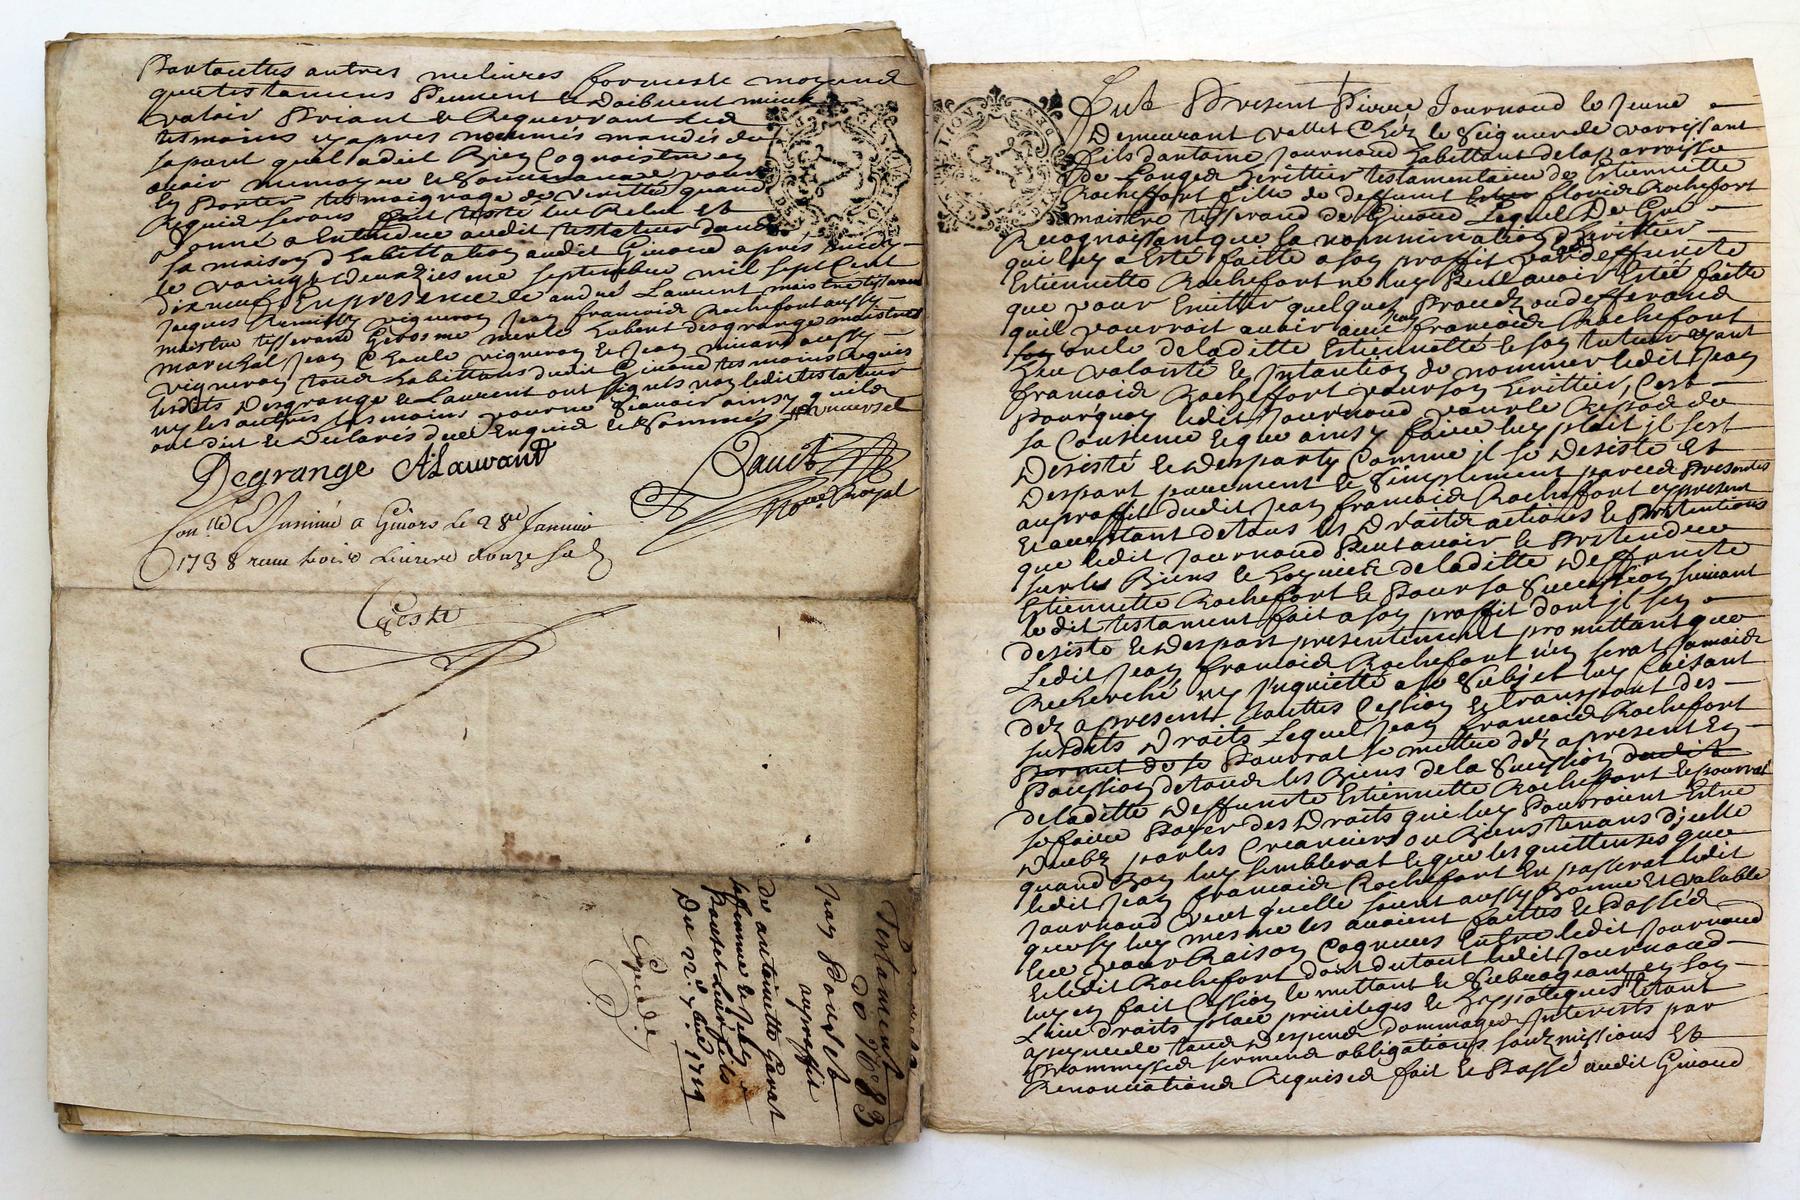 partouttes autres meliures forme et moyend
que testamens peuvent et doibvent mieux
valoir priant et requerrant led
tesmoins cy apres nommés mandés de
sa part quel a dit bien cognoistre en
avoir memoyre et souvenance pour
en porter tesmoignage de veritté quand
requis seront fait testé leu relu et
donné a entendre audit testateur dans
sa maison d'habittation audit Givord après midy
le vaingt deuxiesme septembre mil sept cent
dixneuf en presence de andré Laurent maistre tisserand
Jacques Remilly vigneron Jean françois Rochefort aussy
maistre tisserand Gerosme merle hubert desgrange maistres
marechal Jean Chaule vigneron et Jean aussy
vigneron tous habittans dudit Givord tesmoins requis
lesdits Desgrange et Laurent ont signés non ledit testateur
ny les autres tesmoins pour ne sçavoir ainsy qu'ils
ont dit et déclarés de ce enquis et sommés
Degrange ALaurant
no.re Royal
Con.lle a Givors le 28e Janvier
1738 livres douze sols
Fut present Pierre Journoud le jeune
demeurant vallet chez le seigneur de
fils d'antoine Journoud habittant de la parroisse
de Longes herittier testamentaire de Estiennette
Rochefort fille de deffunt florid Rochefort
maistre tisserand de Givord lequel de gré
recognoissant que la nommination d'herittier
qui luy a esté faitte a son proffit par deffuncte
Estiennette Rochefort ne luy peut avoir estée faitte
que pour eviter quelques procez ou defferand
quil pourroit avoir avec Jean françois Rochefort
son oncle de laditte Estiennette et son tuteur ayant
eu volonté et intantion de nommer ledit Jean
françois Rochefort pour son herittier, c'est
pourquoy ledit Journoud pour le repos de
sa consience et que ainsy faire luy plait il s'est
desisté et desparty comme il se desiste et
despart purement et simplement par ces presentes
au proffit dudit Jean françois Rochefort cy present
et acceptant de tous les droits actions et prettentions
que ledit Journoud peut avoir et prétendre
sur les biens et hoyrie de laditte deffuncte
Estiennette Rochefort et pour sa succession suivant
le dit testament fait a son proffit dont il sen
desiste et despart presentement promettant que
ledit Jean françois Rochefort n'en serat jamais
recherché ny inquietté a ce subjet luy faisant
dez a present touttes cession et transport des
susdits droits lequel Jean françois Rochefort
pourrat se mettre dez a present en
possession de tous les biens de la succession dudit
de laditte deffuncte Estiennette Rochefort et pourrat
se faire payer des droits qui luy pourroient estre
deubz par les creanciers ou biens tenans d'icelle
quand bon luy semblerat et que les quittences que
ledit Jean françois Rochefort en passerat ledit
Journoud veut quelle soient aussy bonne et valable
que sy luy mesme les avoient faittes et passée
eue pour raison cognues entre ledit Journoud
et ledit Rochefort dont du tout ledit Journoud
luy en fait cession le mettant et subrogeant en son
lieu droits place privileges et hypoteques estant
a peyne de tous despend dommages interests par
promesses serments obligations soubzmissions et
renonciations requises fait et passé audit Givord
Testament
de N° 83
Jean Pouzet
au proffit
de antoinette Garat
sa femme et Jean
Pouzet leur fils
Du 22e 7bre 1719
Expedié